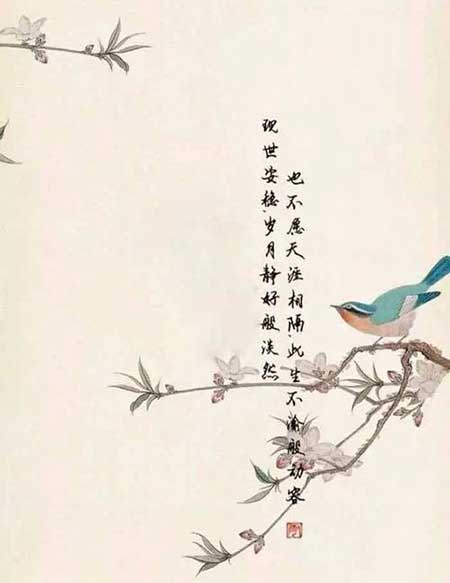 现世安稳,岁月静好般淡然
也不愿天涯相隔,此生不渝般动容